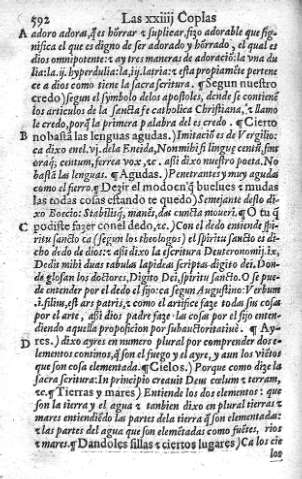 592 Las xxiiij Coplas
A adoro adoras, q̃ es hõrrar z suplicar, fizo adorable que sig-
nifica el que es digno de ser adorado y hõrrado, el qual es
dios omnipotente: z ay tres maneras de adoraciõ: la vna du
lia: la .ij. hyperdulia: la .iij. latria: z esta propiamẽte pertene
ce a dios como tiene la sacra scritura. ¶ Segun nuestro
credo) segun el symbolo delos apostoles, donde se contienẽ
los articulos de la sancta fe catholica Christiana, z llamo
le credo, porq̃ la primera palabra del es credo. ¶ Cierto
B no bastã las lenguas agudas.) Imitaciõ es de Vergilio:
ca dixo enel .vj. dela Eneida, Non mihi si linguę centũ, sint
oraq́; centum, ferrea vox, zc. assi dixo nuestro poeta. No
bastã las lenguas. ¶ Agudas.) Penetrantes y muy agudas
como el fierro. ¶ Dezir el modo en q̃ buelues z mudas
las todas cosas estando te quedo) Semejante desto di-
xo Boecio: Stabilisq́, manẽs, das cuncta moueri. ¶ O tu q̃
C podiste fazer con el dedo, zc.) Con el dedo entiende spi-
ritu sancto ca (segun los theologos) el spiritu sancto es di-
cho dedo de dios: z assi dixo la escritura Deuteronomij .ix,
Dedit mihi duas tabulas lapideas scriptas digito dei. Don-
de glosan los doctores, Digito Dei, spiritu sancto. O se pue-
de entender por el dedo el fijo: ca segun Augustino: Verbum
.i. filius, est ars patris, z como el artifice faze todas sus cosas
por el arte, assi dios padre faze las cosas por el fijo enten-
diendo aquella proposicion por subauctoritatiuè. ¶ Ay-
D res.) dixo ayres en numero plural por comprender dos e-
lementos continos, q̃ son el fuego y el ayre, y aun los viẽtos
que son cosa elementada. ¶ Cielos.) Porque como dize la
sacra scritura: In principio creauit Deus cœlum z terram,
zc. ¶ Tierras y mares) Entiende los dos elementos: que
son la tierra y el agua z tambien dixo en plural tierras z
mares entiendiẽdo las partes dela tierra q̃ son elementadas:
z las partes del agua que son elemẽtadas como fuẽtes, rios
z mares. ¶ Dandoles sillas z ciertos lugares) Ca los cie
los